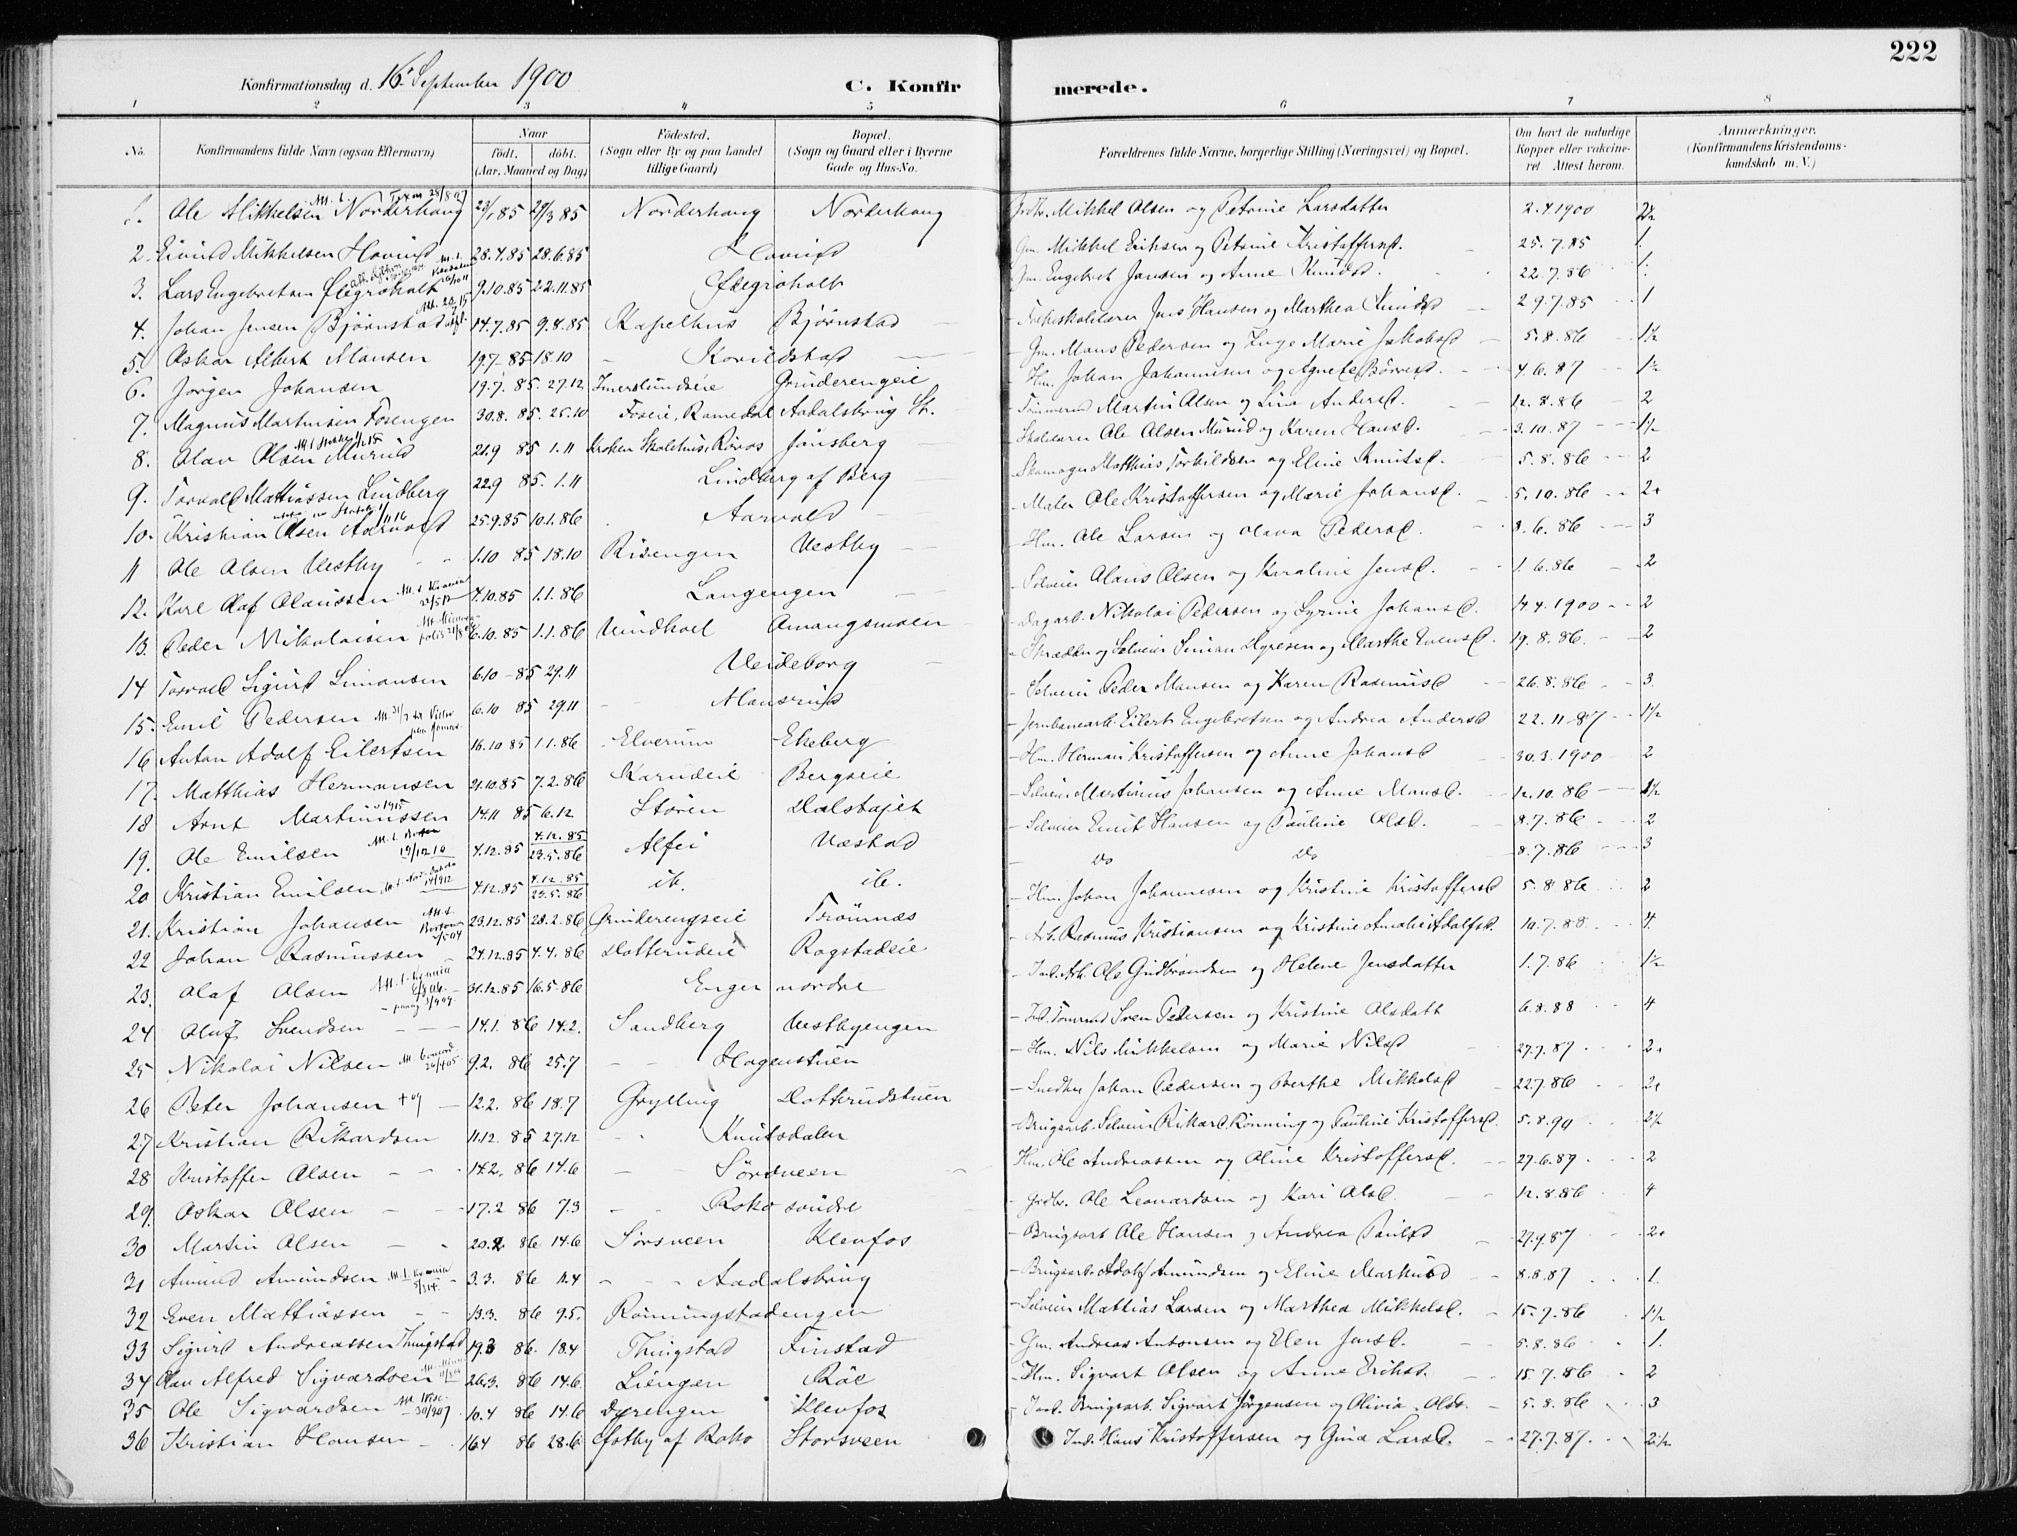 222
Konfirmationsdag d. 16 September 1900
C. Konfir merede.
1 2 3 4 5 6 7 8
No. Konfirmandens fulde Navn (ogsaa Efternavn) Naar født. døbt. (Aar, Maaned og Dag) Födested. (Sogn eller By og paa Landet tillige Gaard) Bopæl. (Sogn og Gaard eller i Byerne Gade og Hus-No. Forældrenes fulde Navne, borgerlige Stilling (Næringsvei) og Bopæl. Om havt de naturlige Kopper eller vakcineret. Attest herom. Anmærkninger. (Konfirmandens Kristendomskundskab m. V.)
1. Ole Mikkelsen Norderhaug 29/3 85 Norderhaug Norderhaug Grdbr. Mikkel Olsen og Petrine Larsdatter 2.4.1900
2. Eivind Mikkelsen Hovind 28.4.85 28.6.85 Hovind Gm. Mikkel Eriksen og Petrine Kristoffersd. 25.7.85 1.
3. Lars Engebretsen 9.10.85 22.11.85 Gm. Engebret Jansen og Anne Knudsd. 22.7.86 1.
4. Johan Jensen Bjørnstad 14.7.85 9.8.85 Kapelhus Bjørnstad Jens Hansen og Marthea Knudsd 29.7.85 1
5. Oskar Albert Mansen 19.7-85 18.10 Korildstad Gm. Mans Pedersen og Inge Marie Jakobsd 5.8.86 1½
6. Jørgen Johansen 19.7. 85. 27.12 Imerslundseie Grinderengeie Hm. Johan Johannesen og Agnete Børresd. 4.6.87 1½
7. Magnus Martinsen Fosengen 30.8. 85. 25.10 Foseie, Romedal Aadalsbrug St. Martin Olsen og Lina Andersd. 12.8.86 2
8. Olav Olsen Murud 21.9 85 1.11 Kroken Skolehus, Røros Jønsberg Skolelærer Ole Olsen Murud og Karen Hansd. 3.10.87 1½
9. Torvald Mattiassen Lindberg 22.9 85. 1.11 Lindberg af Berg Skomager Matthias Torkildsen og Eline Knutsd. 5.8.86 2
10. Kristian Olsen Aarvold 25.9.85 10.1.86 Aarvold Maler Ole Kristoffersen og Marie Johansd. 5.10.86
11 Ole Olsen Vestby 1.10 85 18.10 Risengen Vestby Hm. Ole Larsen og Olava Pedersd. 8.6.86 3
12. Karl Olaf Olaussen 4.10.85 1.1.86 Langengen Selveier Olaus Olsen og Karaline Jensd. 1.6.86 2
13. Peder Nikolaisen 6.10.85 1.1.86 Vindhoel Amangsmoen Dagarb. Nikolai Pedersen og Syrine Johansd. 14.4.1900 2
14 Torvald Sigurd Simonsen 6.10-85 29.11 Veideborg Skrædder og Selveier Simon og Marthe Evensd. 19.8.86. 2
15. Emil Pedersen 6.10 85 29.11 Mansrud Selveier Peder Mansen og Karen Rasmusd 26.8.86 3.
16 Anton Adolf Eilertsen 16.10 85 1.1.86 Elverum Ekeberg Jernbanearb. Eilert Engebretsen og Andrea Andersd 22.11.87 1½
17. Matthias Hermansen 21.10.85 7.2.86 Karudeie Bergseie Hm. Herman Kristoffersen og Anne Johansd 30.3.1900 2
18 Arnt Martinussen 14.11 85 6.12 Støren Dalstøjet Selveier Martinus Johansen og Anne Mansd. 12.10.86
19. Ole Emilsen 4.12.85 4.12.85 23.5.86 Alfei Væstad Selveier Emil Hansen og Pauline Olsd. 8.7.86 2
20 Kristian Emilsen 4.12.85 4.12.85 23.5.86 ib. ib. Do Do 8.7.86 3
21. Kristian Johansen 23.12.85 28.2.86 Grinderengseie Trønnæs Hm. Johan Johannesen og Kristine Kristoffersd 5.8 86 2
22 Johan Rasmussen 24.12.85 4.4.86 Dotterudeie Rogstadeie Arb. Rasmus Kristiansen og Kristine Amalie Adolfsd. 10.7.88. 4
23. Olaf Olsen 31.12.85 16.5-86 Enger nordre Ind. Arb. Ole Gudbrandsen og Helene Jensdatter 1.7.86 1½
24 Oluf Svendsen 14.1. 86 14.2. Sandberg Vestbyengen Sven Pedersen og Kristine Olsdatt 6.8.88 4
25 Nikolai Nilsen 9.2. 86 25.7 Hagenstuen Hm. Nils Mikkelsen og Marie Nilsd 27.7.87
26 Peter Johansen 12.2. 86 18.7 Grylling Dotterudstuen Snedker Johan Pedersen og Berthe Mikkelsd 22.7.86
27 Kristian Rikardsen 11.12. 85 27.12 Knutsdalen Brugsarb. Selveier Rikard Rønning og Pauline Kristoffersd. 5.8.90 2½
28 Kristoffer Olsen 14.2. 86 14.6 Sørsveen Hm. Ole Andreassen og Oline Kristoffersd. 27.6.87 2
29. Oskar Olsen 17.2 86 7.3 Roko søndre Grdbr. Ole Leonardsen og Kari Olsd. 12.8.86 4
30 Martin Olsen 20.2 86 14.6 Sørsveen Klevfos Brugsarb Ole Hansen og Andrea Paulsd
31 Amund Amundsen 3.3. 86 11.4 Aadalsbrug Brugsarb. Adolf Amundsen og Eline Markusd 8.8.87 1.
32 Even Mattiassen 13.3. 86 9.5. Rønningstadengen Selveier Mattias Larsen og Marthea Mikkelsd. 15.7.86 1½
33 Sigurd Andreassen Thingstad 19.3 86. 18.4 Thingstad Finstad Gm. Andreas Antonsen og Elen Jensd. 5.8.86 1.
34 Olav Alfred Sigvardsen 26.3. 86 14.6 Liengen Røe Hm. Sigvart Olsen og Anne Eriksd. 15.7.86 2
35 Ole Sigvardsen 10.4 86 14.6 Dyrengen Klevfos Ind. Brugsarb. Sigvart Jørgensen og Olivia Olsd. 5.8.86 3
36 Kristian Hansen 16.4 86 28.6 af Roko Storsveen Ind. Hans Kristoffersen og Gina Larsd. 27.7.87. 2½